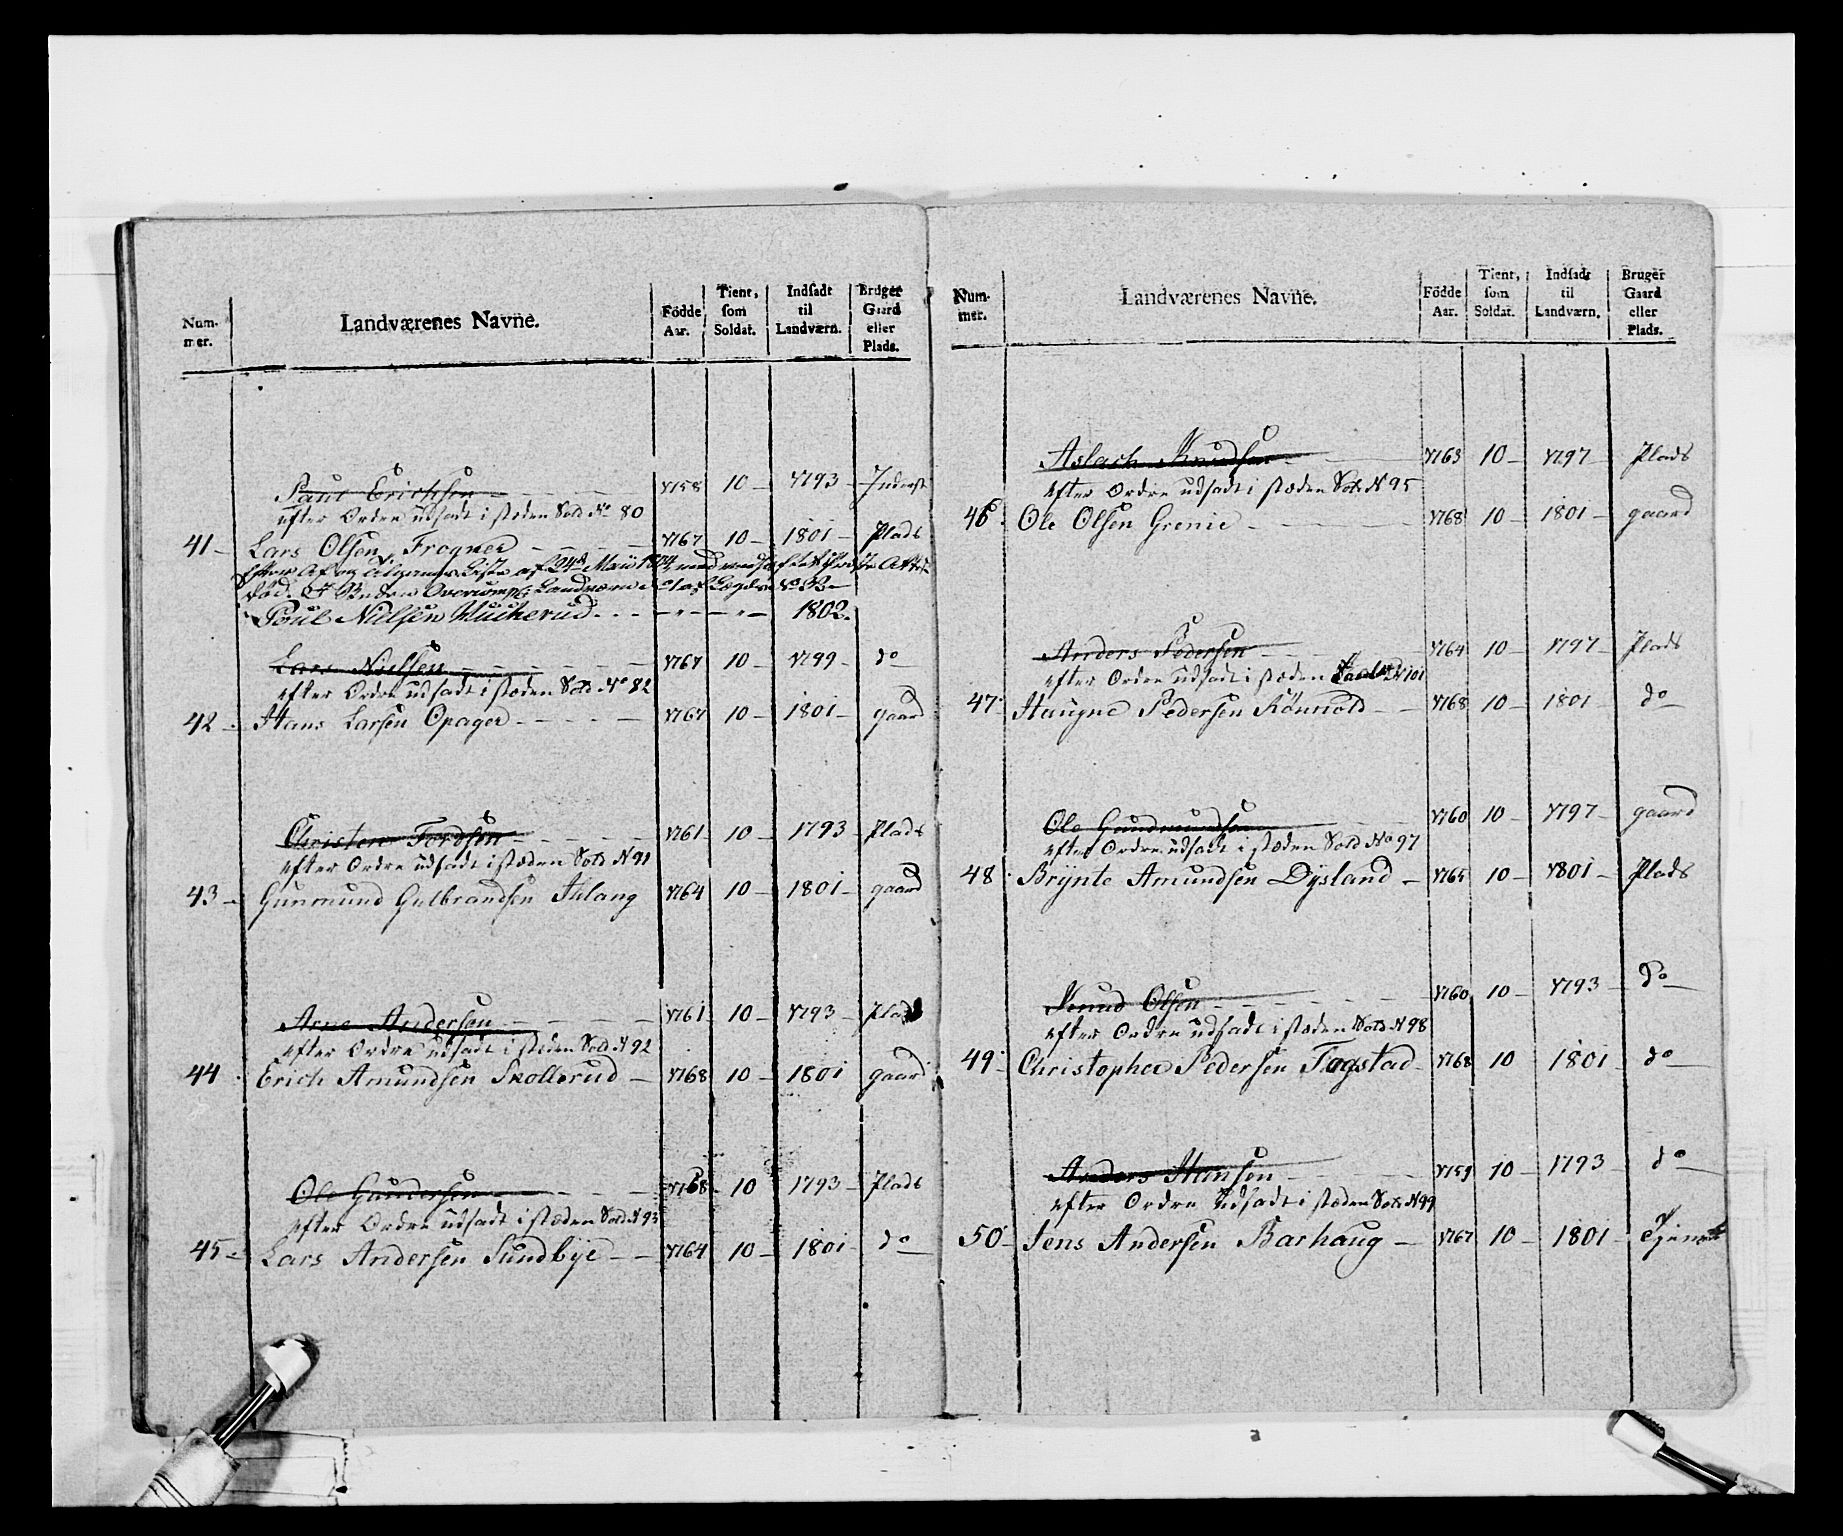 Num-mer. Landværenes Navne. Födde Aar. Tient, som Soldat. Indsadt til Landværn. Bruger Gaard eller Plads.
Paul Erichsen 1758 10 1793 Inderst
efter Ordre udsadt i stæden Sold No 80
41 Lars Olsen Frogner 1767 10 1801 Plads
Liste af 24de Maii
död.
Poul Nielsen 1802.
Lars Nielsen 1767 10 1799 do
efter Ordre udsadt i stæden Sold No 82
42 Hans Larsen Opager 1767 10 1801 gaard
Christen Tordsen 1761 10 1793 Plads
efter Ordre udsadt i stæden Sold N 91
43 Gunmund Gulbrandsen Ihlang 1764 10 1801 gaard
Arne Andersen 1761 10 1793 Plads
efter Ordre udsadt i stæden Sold N 92
44 Erich Amundsen Skollerud 1768 10 1801 gaard
Ole Gundersen 1768 10 1793 Plads
efter Ordre udsadt i stæden Sold N 93
45 Lars Andersen Sundbye 1764 10 1801 do
Num-mer. Landværenes Navne. Födde Aar. Tient, som Soldat. Indsadt til Landværn. Bruger Gaard eller Plads.
Aslach Knudsen 1763 10 1797 Plads
efter Ordre udsadt i stæden Sold N 95
46 Ole Olsen Grenie 1768 10 1801 gaard
Anders Pedersen 1764 10 1797 Plads
efter Ordre udsadt i stæden N 101
47 Haugne Pedersen Rönnold 1768 10 1801 do
Ole Gundmundsen 1760 10 1797 gaard
efter Ordre udsadt i stæden Sold No 97
48 Brynte Amundsen Dysland 1765 10 1801 Plads
Knud Olsen 1760 10 1793 do
efter Ordre udsadt i stæden Sold N 98
49 Christopher Pedersen Fagstad 1768 10 1801 do
Anders Hansen 1759 10 1793 do
efter Ordre udsadt i stæden Sold N 99
50 Jens Andersen Barhaug 1767 10 1801